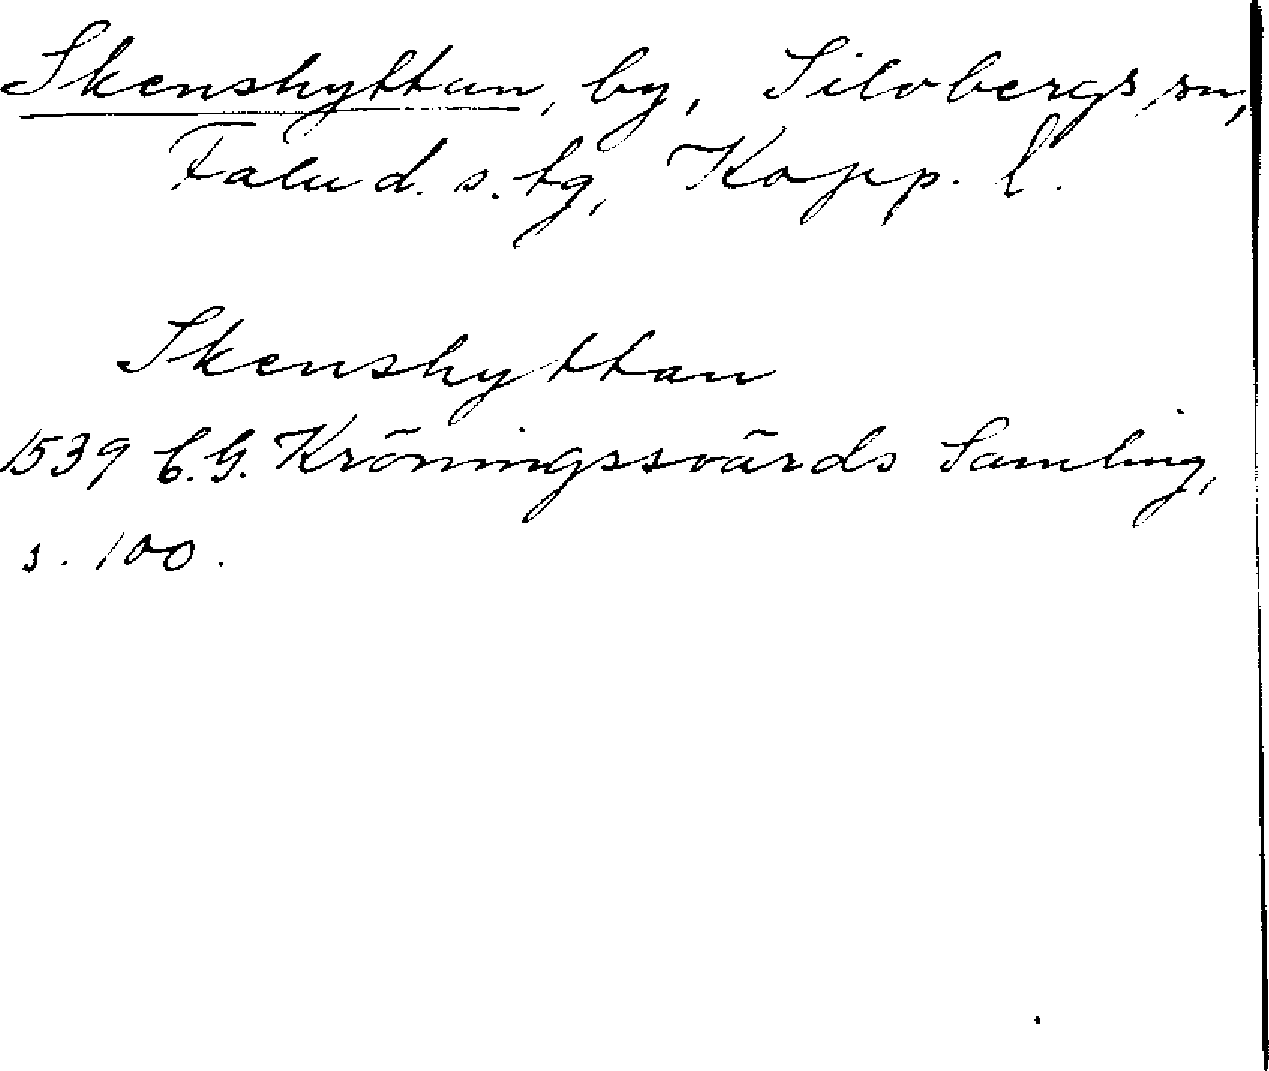 Skenshyttan, by, Silvbergs sn,
Falu d. s. tg, Kopp. l.
Skenshyttan
1539 C. G. Kröningssvärds Samling,
s. 100.